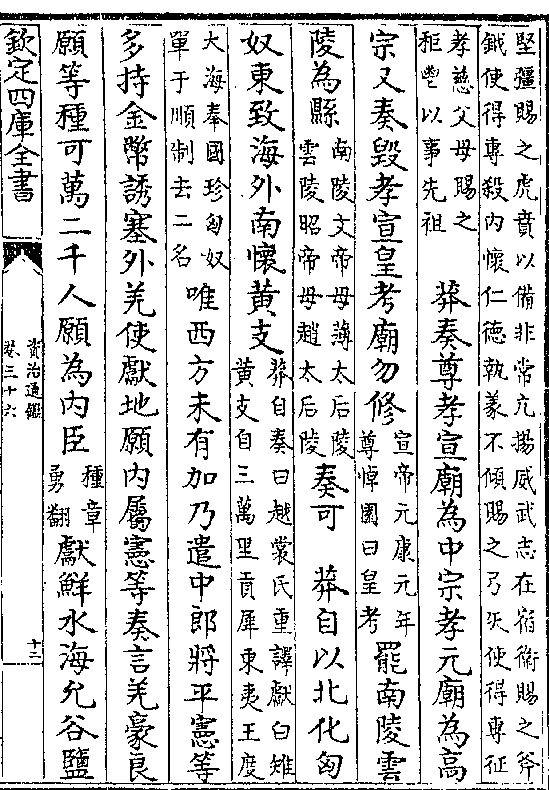 堅彊賜之虎賁以備非常亢揚威武志在宿衛賜之斧
鉞使得專殺內懷仁德執義不傾賜之弓矢使得專征
孝慈父母賜之
秬鬯以事先祖
莽奏尊孝宣廟為中宗孝元廟為高
宗又奏毀孝宣皇考廟勿修
宣帝元康元年
尊悼園曰皇考
罷南陵雲
陵為縣
南陵文帝母薄太后陵
雲陵昭帝母趙太后陵
奏可　莽自以北化匈
奴東致海外南懷黃支
莽自奏曰越裳氏重譯獻白雉
黃支自三萬里貢犀東夷王度
大海奉國珍匈奴
單于順制去二名
唯西方未有加乃遣中郎將平憲等
多持金幣誘塞外羌使獻地願內屬憲等奏言羌豪良
願等種可萬二千人願為內臣
種章
勇翻
獻鮮水海允谷鹽
欽定四庫全書
資治通鑑
卷三十六
十二